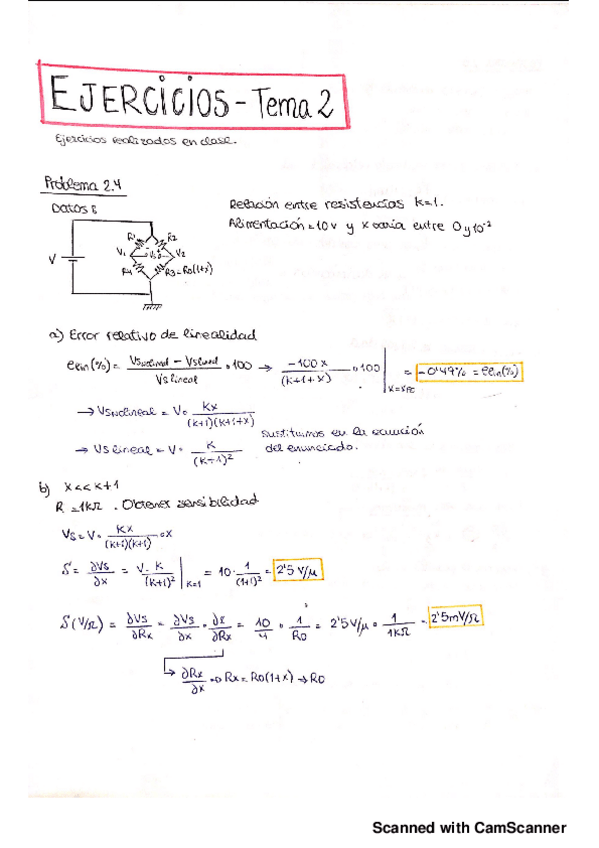 EJERCICIOS - Tema 2
Ejercicios realizados en clase.
Problema 2.4
Datos:
Relación entre resistencias k=1.
Alimentación = 10v y x varía entre 0 y 10⁻²
R1 R2
V V1 Vs V2
R4 R3=Ro(1+x)
a) Error relativo de linealidad
elin(%) = (Vsnolineal - Vslineal)/(Vslineal) · 100 → (-100x)/(k+1+x) · 100 |x=xFE = -0'49% = elin(%)
→ Vsnolineal = V· kx/((k+1)(k+1+x))
sustituimos en la ecuación
→ Vslineal = V· k/(k+1)²
del enunciado.
b) x<<k+1
R = 1KΩ . Obtener sensibilidad
Vs = V· kx/((k+1)(k+1)) · x
S = ∂Vs/∂x = V·k/(k+1)² |k=1 = 10· 1/(1+1)² = 2'5 V/μ
S(V/Ω) = ∂Vs/∂Rx = ∂Vs/∂x · ∂x/∂Rx = 10/4 · 1/Ro = 2'5 V/μ · 1/1KΩ = 2'5mV/Ω
∂Rx/∂x → Rx = Ro(1+x) → Ro
Scanned with CamScanner